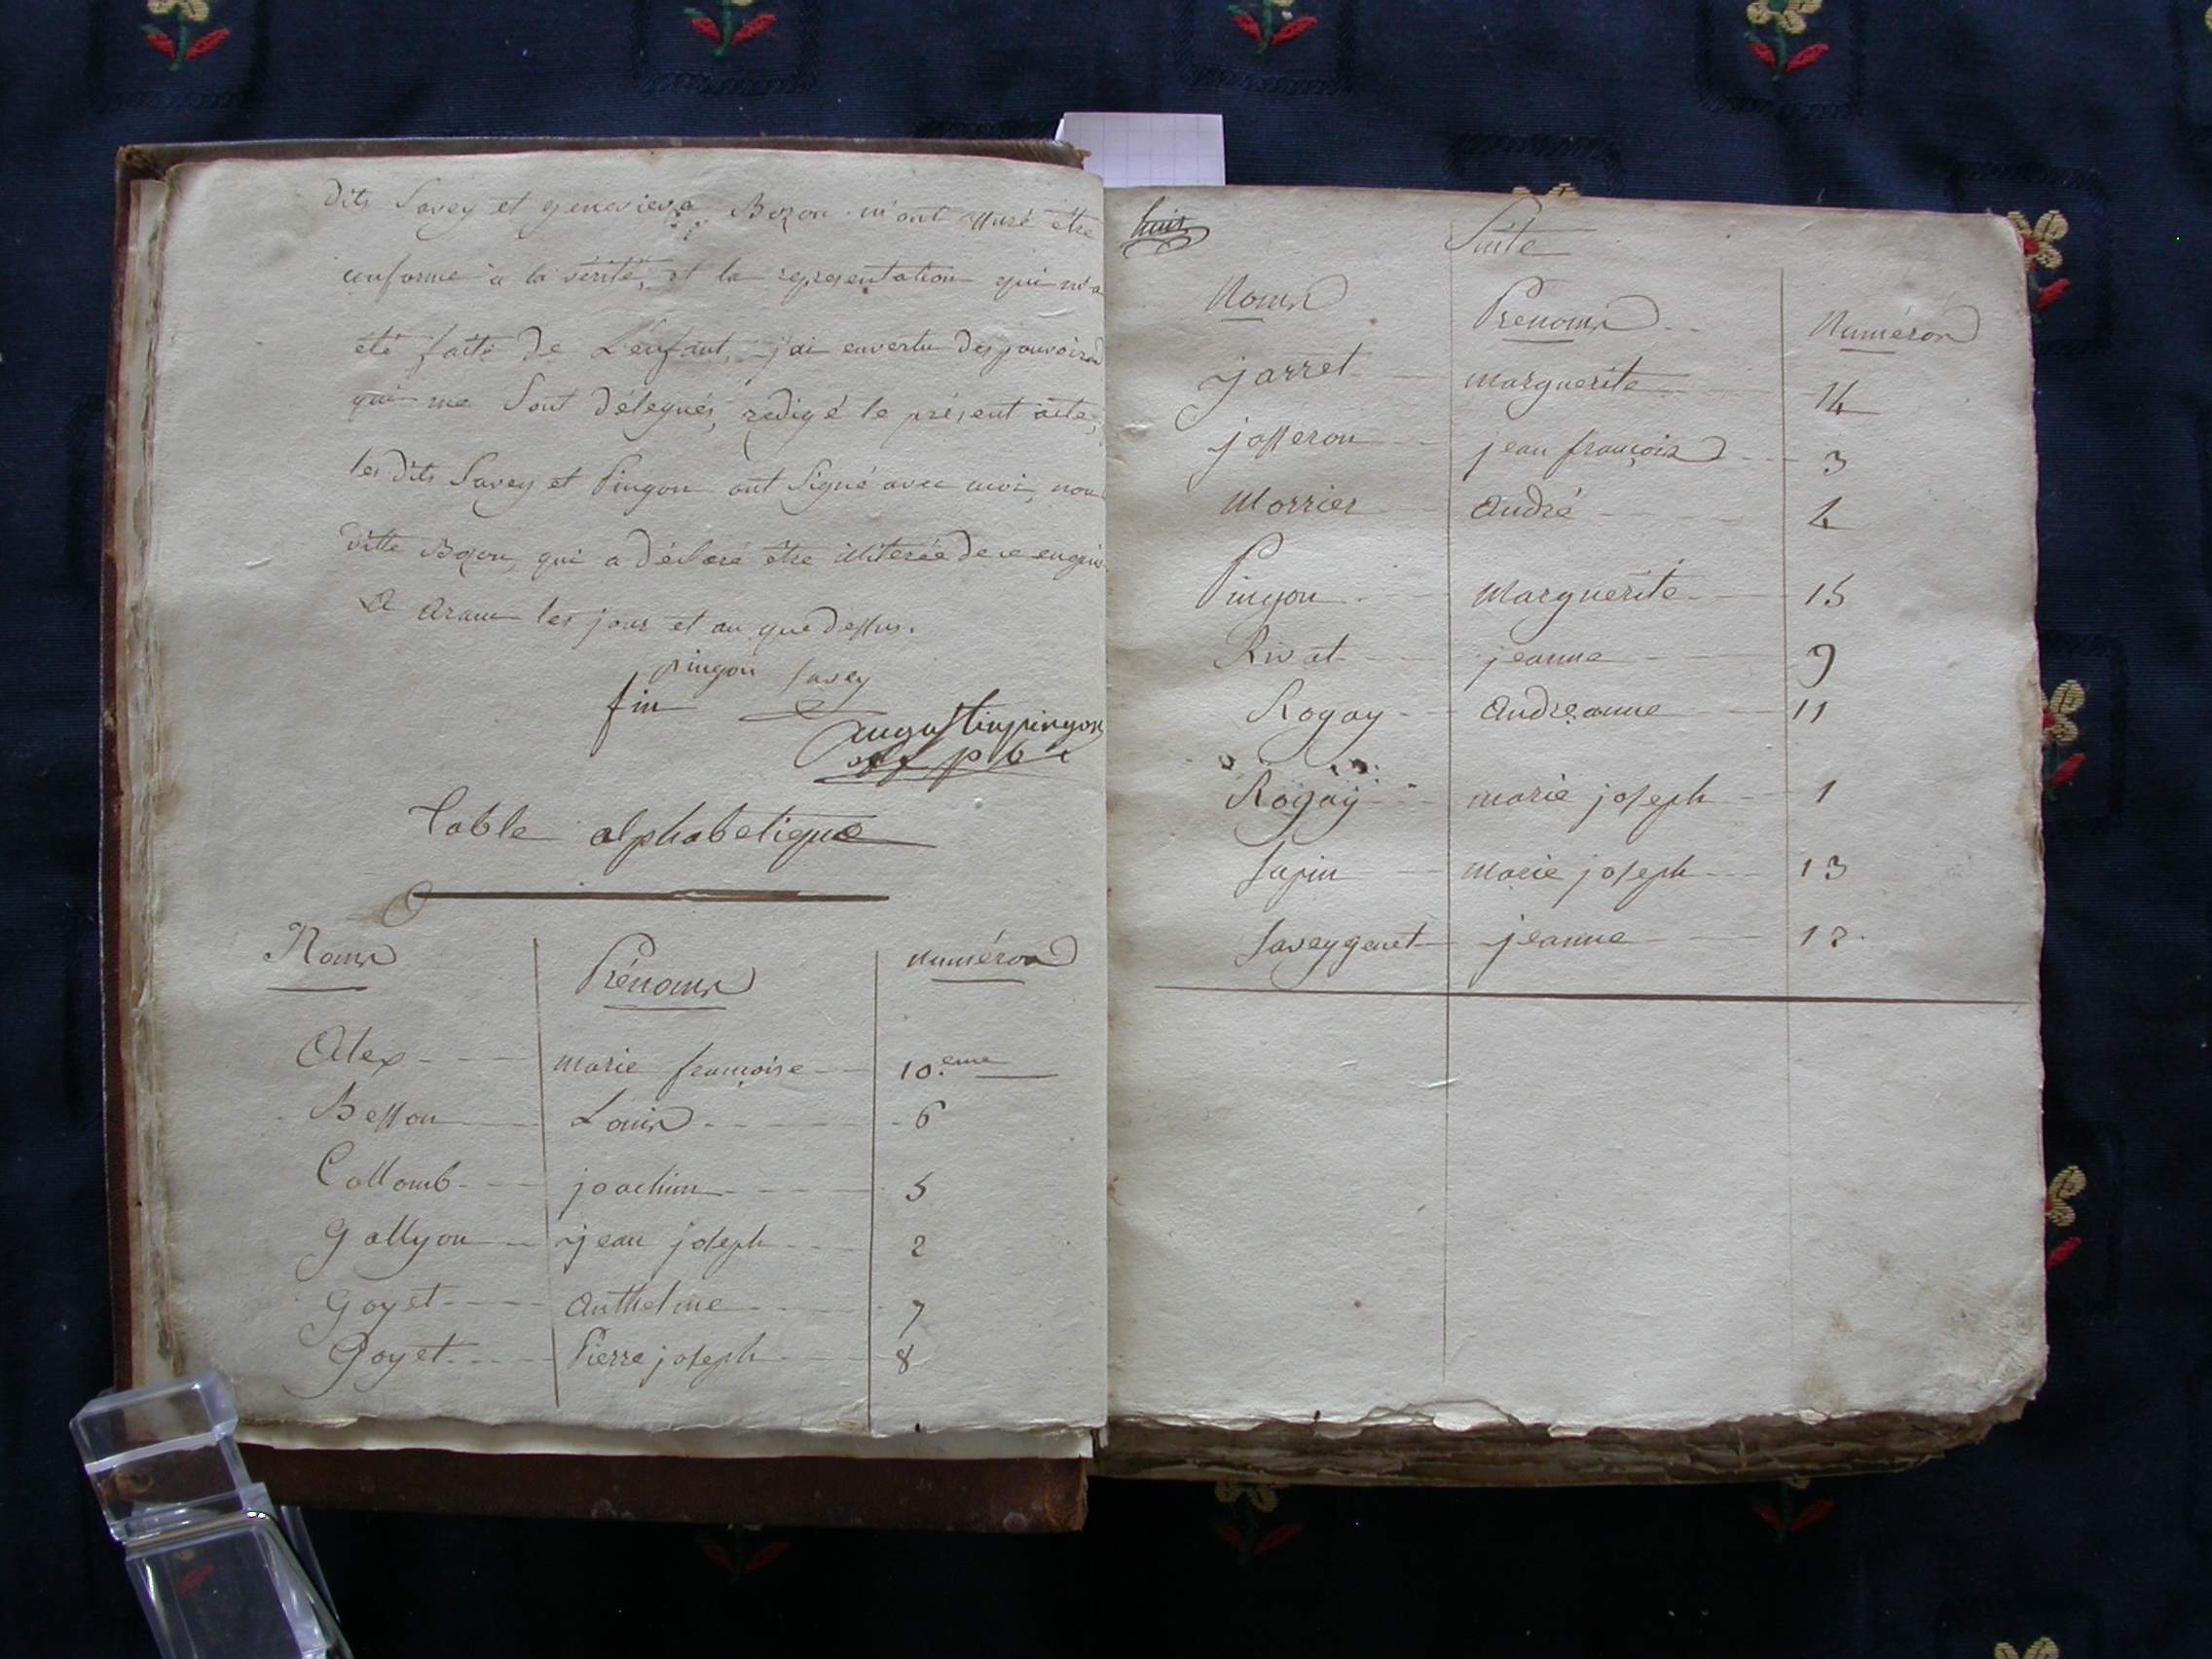 dits Savey et genevieve Bozon m'ont assuré être
conforme à la vérité, et la representation qui m'a
été faite de L'enfant, j'ai en vertu des pouvoirs
qui me sont délégués, redigé le présent acte,
les dits Savey et Pingon ont signé avec moi, non
ditte Bozon, qui a déclaré être illiterée de ce enquise
A aranc les jour et an que dessus.
pingon Savey
fin
augustin pingon
Table alphabetique
Noms Prénoms numéros
Alex marie françoise 10.eme
Besson Louis 6
Collomb joachim 5
gallyon jean joseph 2
goyet anthelme 7
Goyet Pierre joseph 8
huit
Suite
Noms Prenoms Numéros
jarret marguerite 14
josseron jean françois 3
Morrier andré 4
Pingon Marguerite 15
Rivat jeanne 9
Rogay andréanne 11
Rogay marie joseph 1
Sapin marie joseph 13
Saveygenet jeanne 12